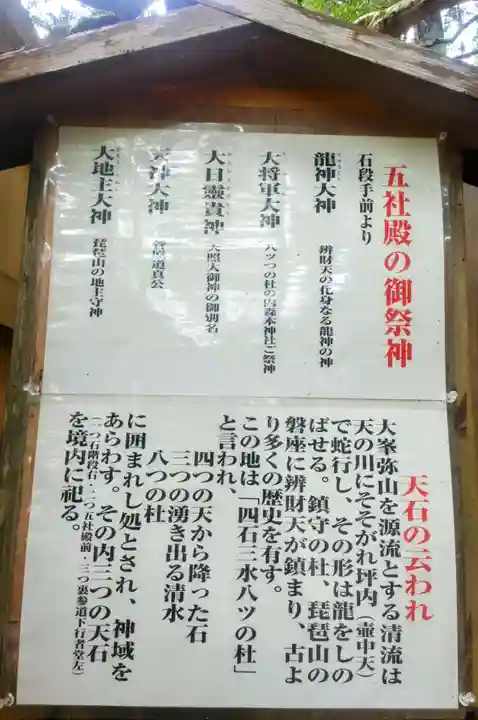 五社殿の御祭神
石段手前より
龍神大神 辨財天の化身なる龍神の神
大将軍大神 八ツの杜の内森本神社ご祭神
大日霊貴神 天照大御神の御別名
天神大神 菅原道真公
大地主大神 琵琶山の地主守神
天石の云われ
大峯弥山を源流とする清流は
天の川にそそがれ坪内（壷中天）
で蛇行し、その形は龍をしの
ばせる。鎮守の杜、琵琶山の
磐座に辨財天が鎮まり、古よ
り多くの歴史を有す。
この地は「四石三水八ツの杜」
と言われ、
四つの天から降った石
三つの湧き出る清水
八つの杜
に囲まれし処とされ、神域を
あらわす。その内三つの天石
（一つ石階段右・二つ五社殿前・三つ裏参道下行者堂左）
を境内に祀る。